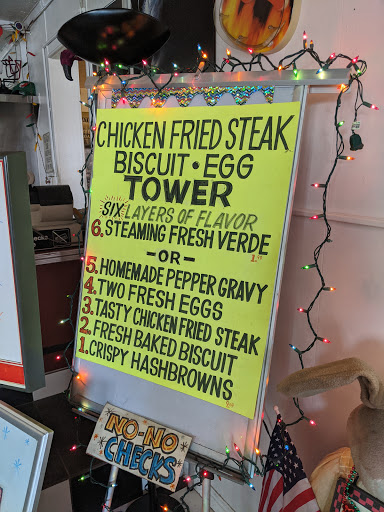 CHICKEN FRIED STEAK
BISCUIT • EGG
TOWER
SIX LAYERS OF FLAVOR
6. STEAMING FRESH VERDE
-OR-
5. HOMEMADE PEPPER GRAVY
4. TWO FRESH EGGS
3. TASTY CHICKEN FRIED STEAK
2. FRESH BAKED BISCUIT
1. CRISPY HASHBROWNS
NO-NO
CHECKS